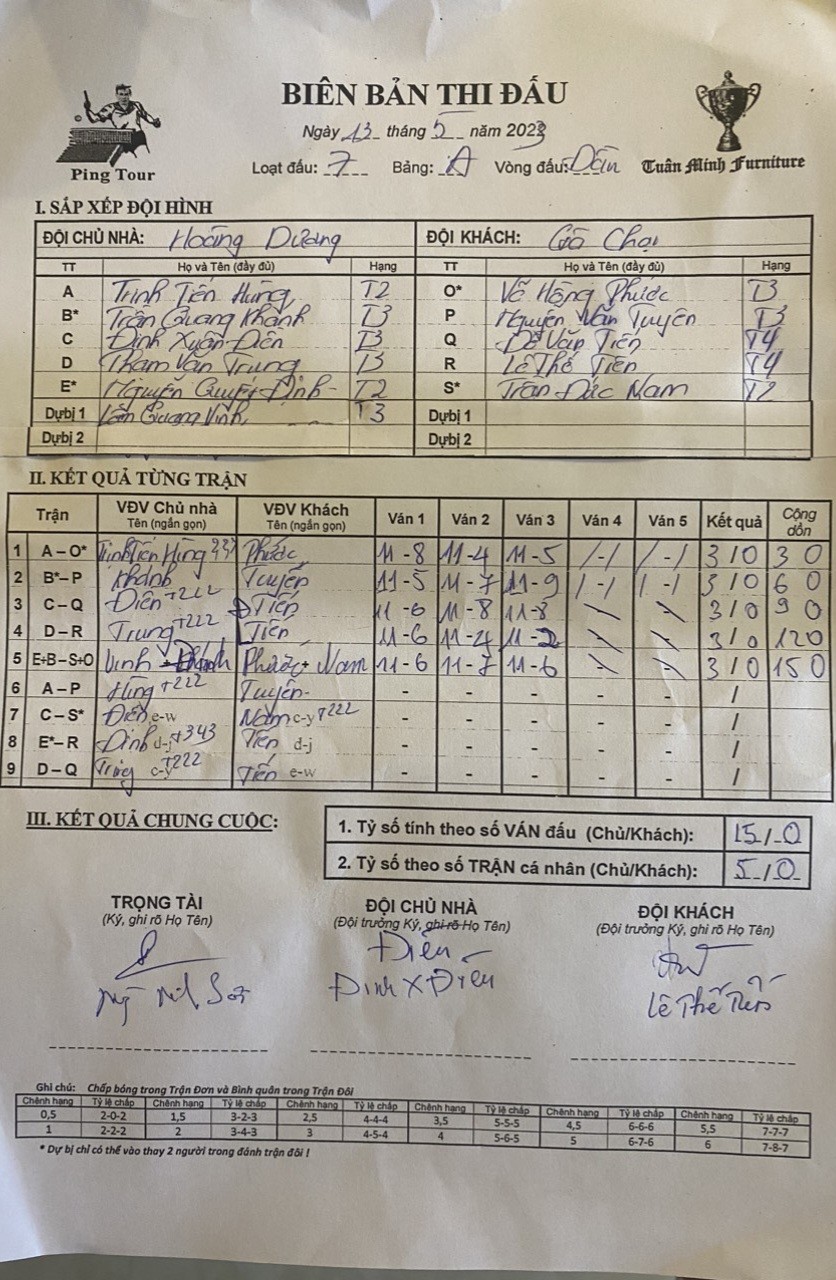 BIÊN BẢN THI ĐẤU
Ngày 13 tháng 5 năm 2023
Ping Tour
Loạt đấu: 7 Bảng: A Vòng đấu: Dồn
Tuân Minh Furniture
I. SẮP XẾP ĐỘI HÌNH
ĐỘI CHỦ NHÀ: Hoàng Dương ĐỘI KHÁCH: Gò Chai
TT Họ và Tên (đầy đủ) Hạng TT Họ và Tên (đầy đủ) Hạng
A Trịnh Tiến Hùng T2 O* Võ Hồng Phước T3
B* Trần Quang Khánh T3 P Nguyễn Văn Tuyên T3
C Đinh Xuân Diên T3 Q Đỗ Văn Tiến T4
D Phạm Văn Trung T3 R Lê Thế Tiên T4
E* Nguyễn Quyết Định T2 S* Trần Đức Nam T2
Dự bị 1 Quang Vinh T3 Dự bị 1
Dự bị 2 Dự bị 2
II. KẾT QUẢ TỪNG TRẬN
Trận VĐV Chủ nhà Tên (ngắn gọn) VĐV Khách Tên (ngắn gọn) Ván 1 Ván 2 Ván 3 Ván 4 Ván 5 Kết quả Cộng dồn
1 A – O* Tiến Hùng Phước 11-8 11-4 11-5 /-/ /-/ 3/0 3 0
2 B* – P Khánh Tuyến 11-5 11-7 11-9 /-/ /-/ 3/0 6 0
3 C – Q Điên +222 Tiến 11-6 11-8 11-8 3/0 9 0
4 D – R Trung +222 Tiên 11-6 11-4 11-2 3/0 12 0
5 E+B – S+O Vinh + Khánh Phước + Nam 11-6 11-7 11-6 3/0 15 0
6 A – P Hùng +222 Tuyên - - - - - /
7 C – S* Điên e-w Nam c-y +222 - - - - - /
8 E* – R Định d-j +343 Tiên d-j - - - - - /
9 D – Q Trung c-y +222 Tiến e-w - - - - - /
III. KẾT QUẢ CHUNG CUỘC:
1. Tỷ số tính theo số VÁN đấu (Chủ/Khách): 15/0
2. Tỷ số theo số TRẬN cá nhân (Chủ/Khách): 5/0
TRỌNG TÀI ĐỘI CHỦ NHÀ ĐỘI KHÁCH
(Ký, ghi rõ Họ Tên) (Đội trưởng Ký, ghi rõ Họ Tên) (Đội trưởng Ký, ghi rõ Họ Tên)
Điên
Đinh X Điên
Lê Thế Tiên
Ghi chú: Chấp bóng trong Trận Đơn và Bình quân trong Trận Đôi
Chênh hạng Tỷ lệ chấp Chênh hạng Tỷ lệ chấp Chênh hạng Tỷ lệ chấp Chênh hạng Tỷ lệ chấp Chênh hạng Tỷ lệ chấp Chênh hạng Tỷ lệ chấp
0,5 2-0-2 1,5 3-2-3 2,5 4-4-4 3,5 5-5-5 4,5 6-6-6 5,5 7-7-7
1 2-2-2 2 3-4-3 3 4-5-4 4 5-6-5 5 6-7-6 6 7-8-7
* Dự bị chỉ có thể vào thay 2 người trong đánh trận đôi !